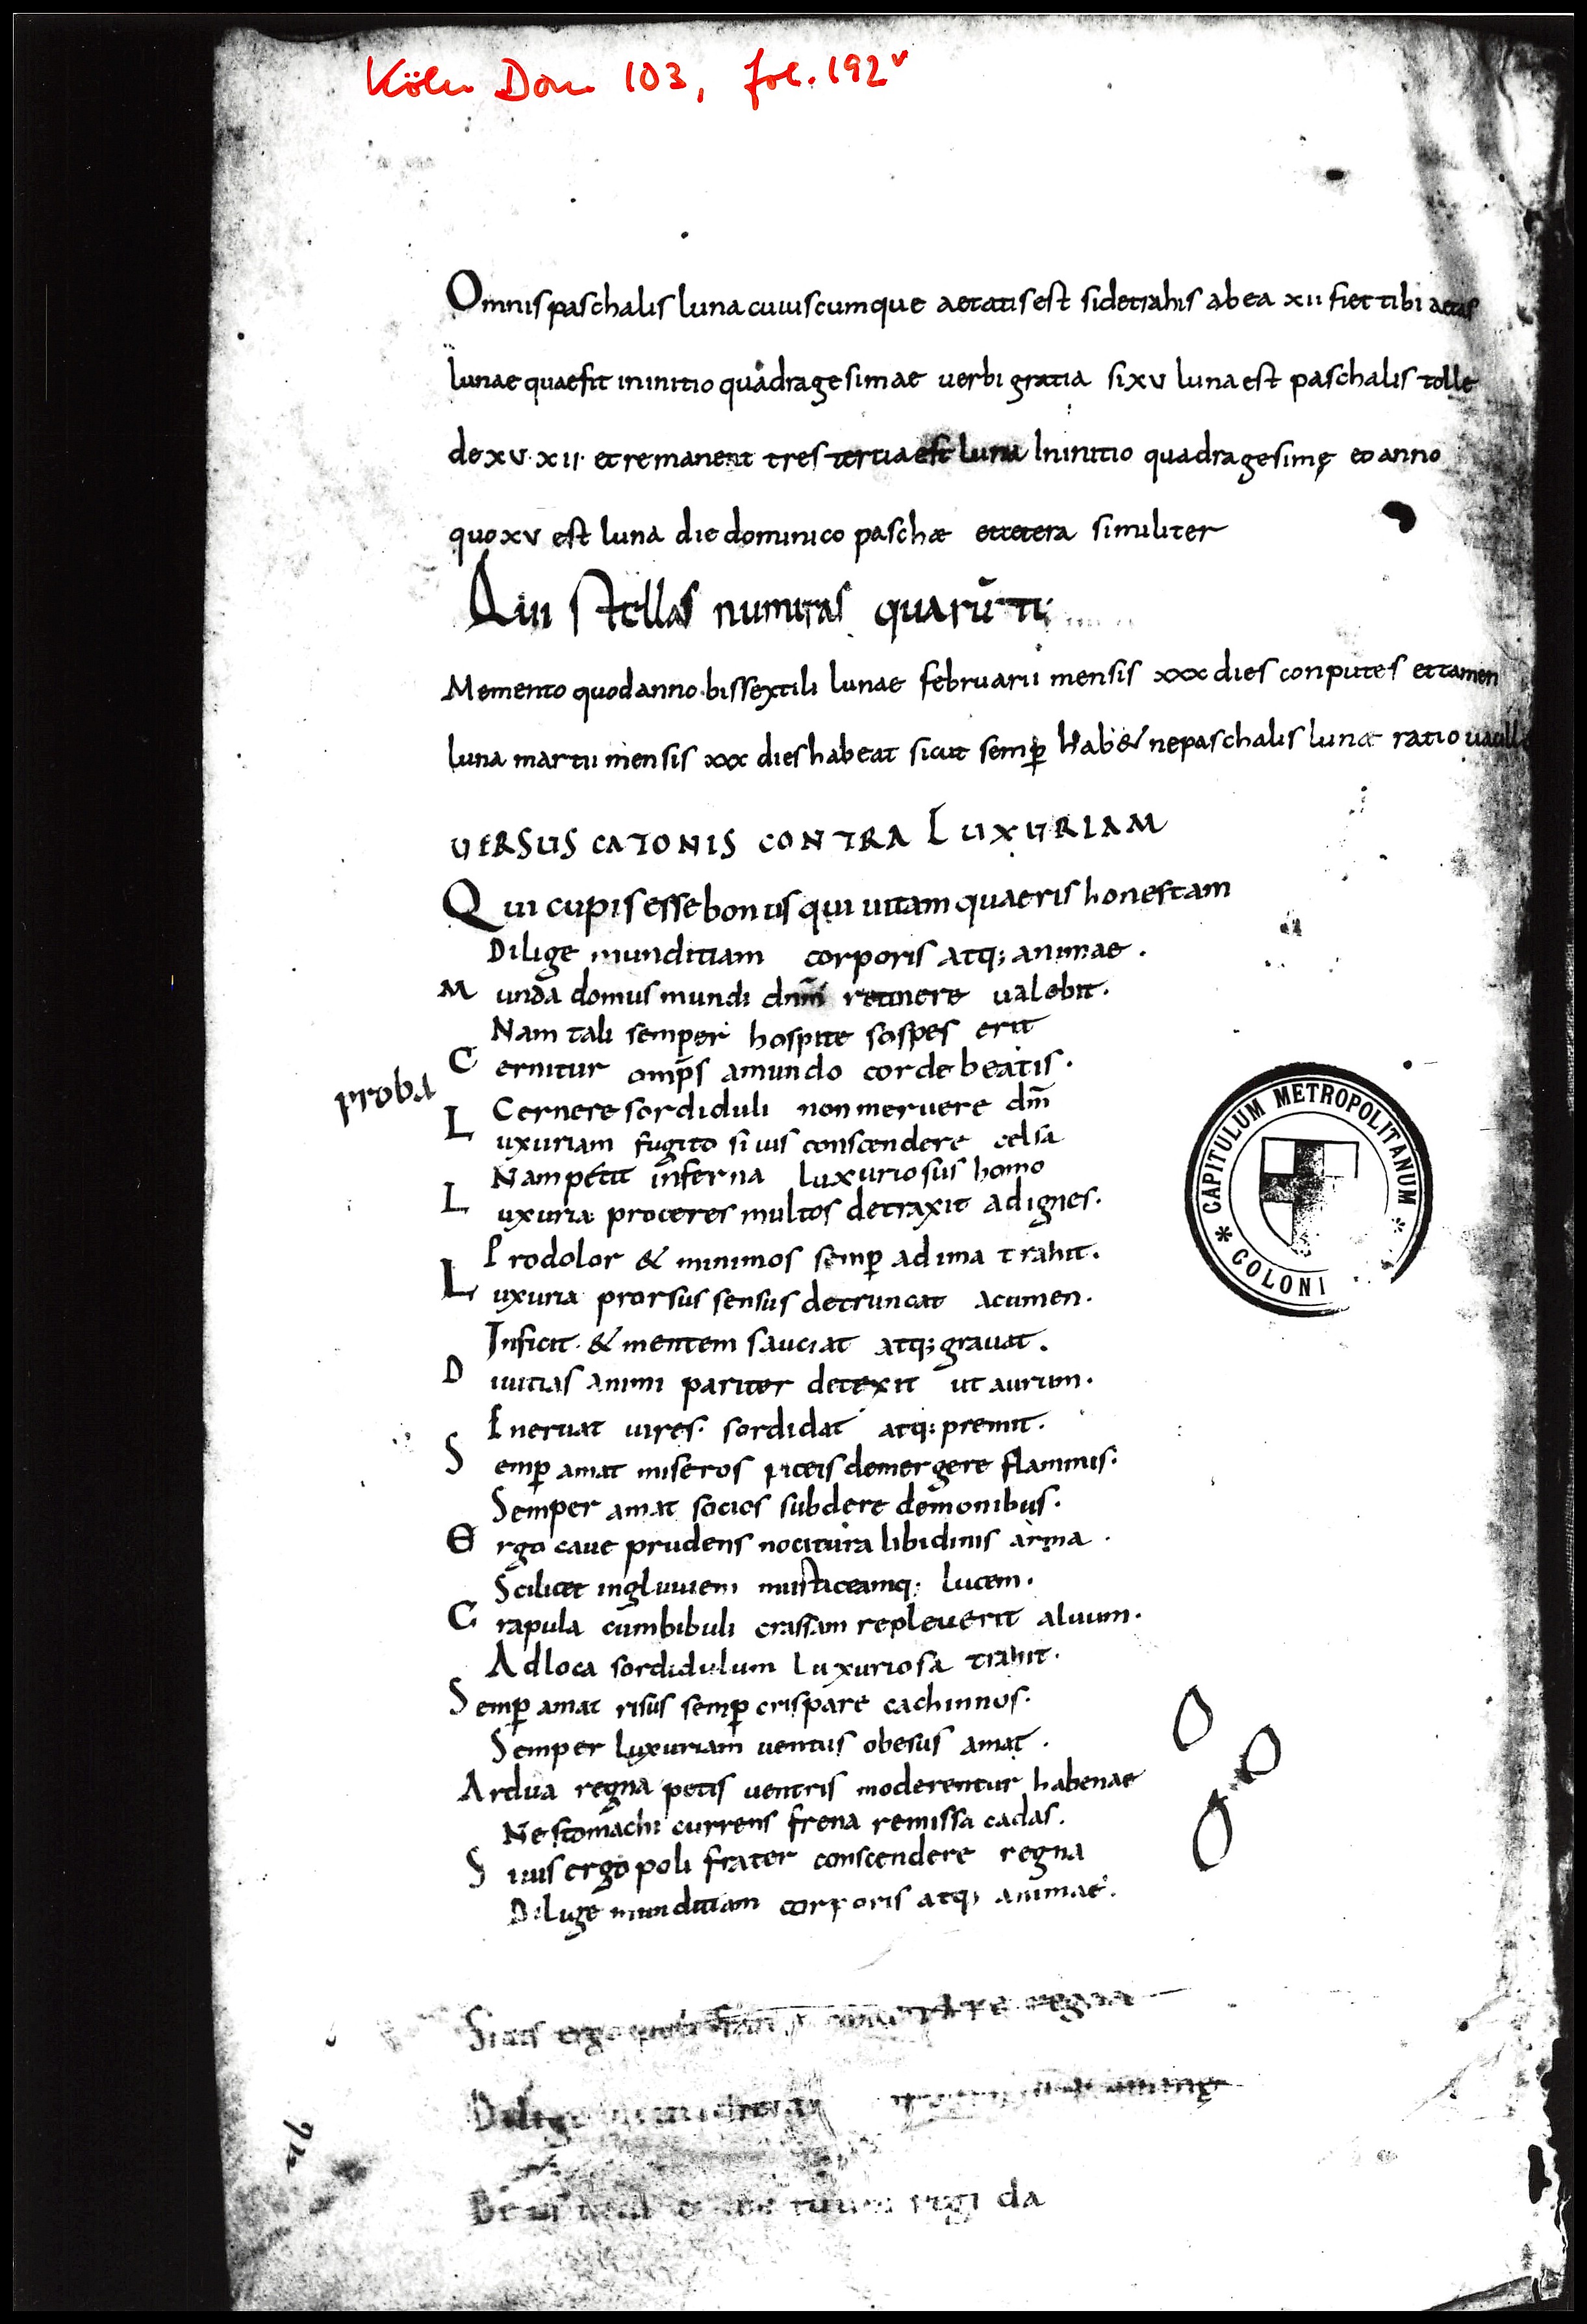 Köln Dom 103, fol. 192v
Omnis paschalis luna cuiuscumque aetatis est si detrahis ab ea xii fiet tibi aetas
lunae quae fit in initio quadragesimae uerbi gratia si xv luna est paschalis tolle
de xv· xii· et remanent tres tertia est luna In initio quadragesimę eo anno
quo xv est luna die dominico paschæ et cetera similiter
Qui stellas numeras quarū tu
Memento quod anno bissextili lunae februarii mensis xxx dies conputes et tamen
luna martii mensis xxx dies habeat sicut semp̱ hab& ne paschalis lunæ ratio uacill
UERSUS CATONIS CONTRA LUXURIAM
Qui cupis esse bonus qui uitam quaeris honestam
Dilige munditiam corporis atq; animae.
Munda domus mundi dnm̄ retinere ualebit.
Nam tali semper hospite sospes erit
proba
Cernitur omp̄s a mundo corde beatis.
Cernere sordiduli non meruere dm̄
Luxuriam fugito si uis conscendere celsa
Nam petit inferna luxuriosus homo
Luxuria proceres multos detraxit ad ignes.
Prodolor & minimos semp̱ ad ima trahit.
Luxuria prorsus sensus detruncat acumen.
Inficit & mentem sauciat atq; grauat.
Diuitias animi pariter detexit ut aurum.
Eneruat uires. sordidat atq; premit.
Semp̱ amat miseros piceis demergere flammis.
Semper amat socios subdere demonibus.
Ergo caue prudens nocitura libidinis arma.
Scilicet ingluuiem mustaceamq; lucem.
Crapula cum bibuli crassam repleuerit aluum.
Ad loca sordidulum luxuriosa trahit.
Semp̱ amat risus semp̱ crispare cachinnos.
Semper luxuriam uentus obesus amat.
Ardua regna petis uentris moderentur habenae
Ne stomachi currens frena remissa cadas.
Si uis ergo poli frater conscendere regna
Dilige munditiam corporis atq; animae.
CAPITULUM METROPOLITANUM * COLONI *
Si uis ergo poli regna
Dilige animę
regi da